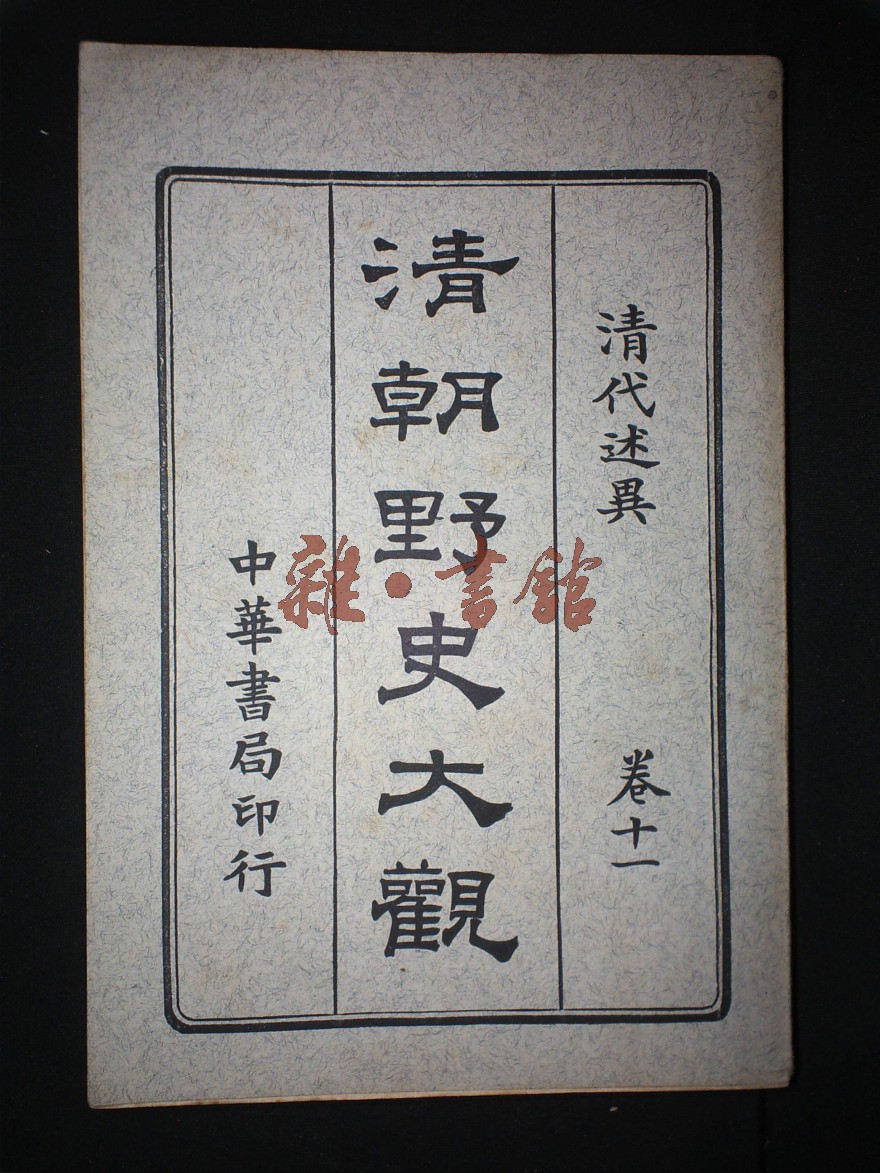 清代述異 卷十一
清朝野史大觀
中華書局印行
雜·書館